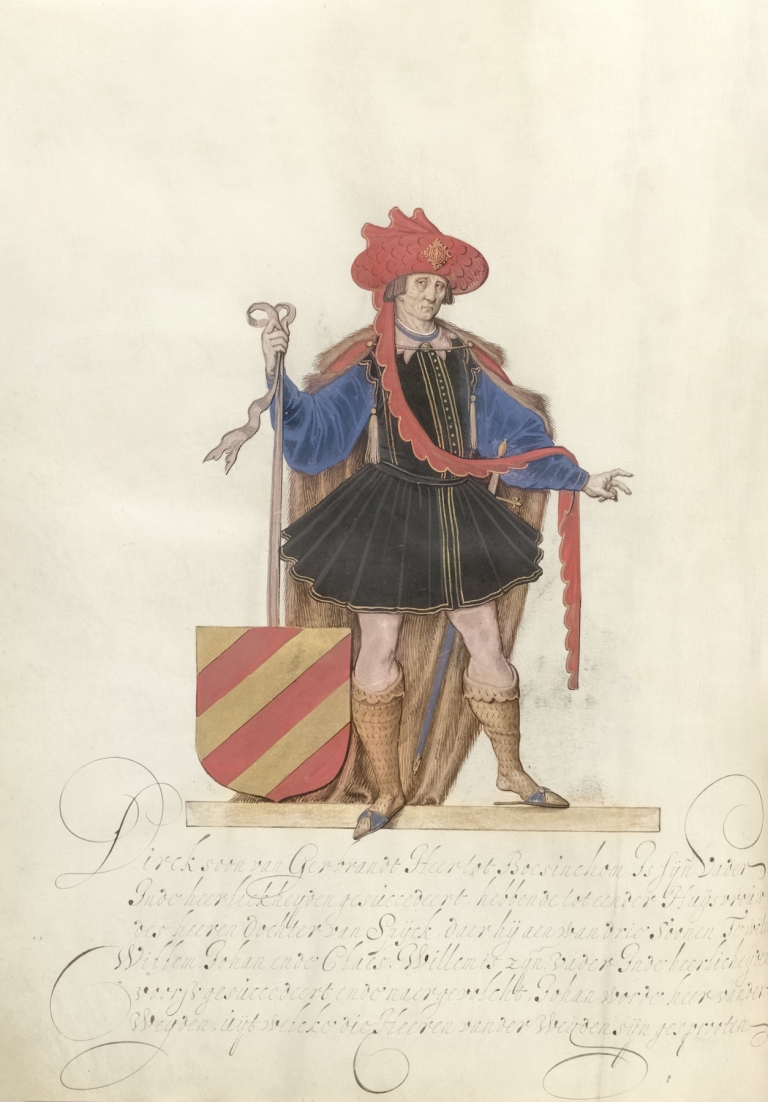 Dirck soon van Gerbrandt Heer tot Boesinchem Is sijn Vader
Inde heerlickheyden gesuccedeert, hebbende tot eender Huysvrouw
des heeren Dochter van Rijck, daer hij aen wan drie Soonen
Willem Johan ende Claes. Willem is zijn Vader Inde heerlicheyden
voorss gesuccedeert ende naergevolcht. Johan worde heer vander
Weyden, uijt welcke die Heeren vander Weyden sijn gesprooten